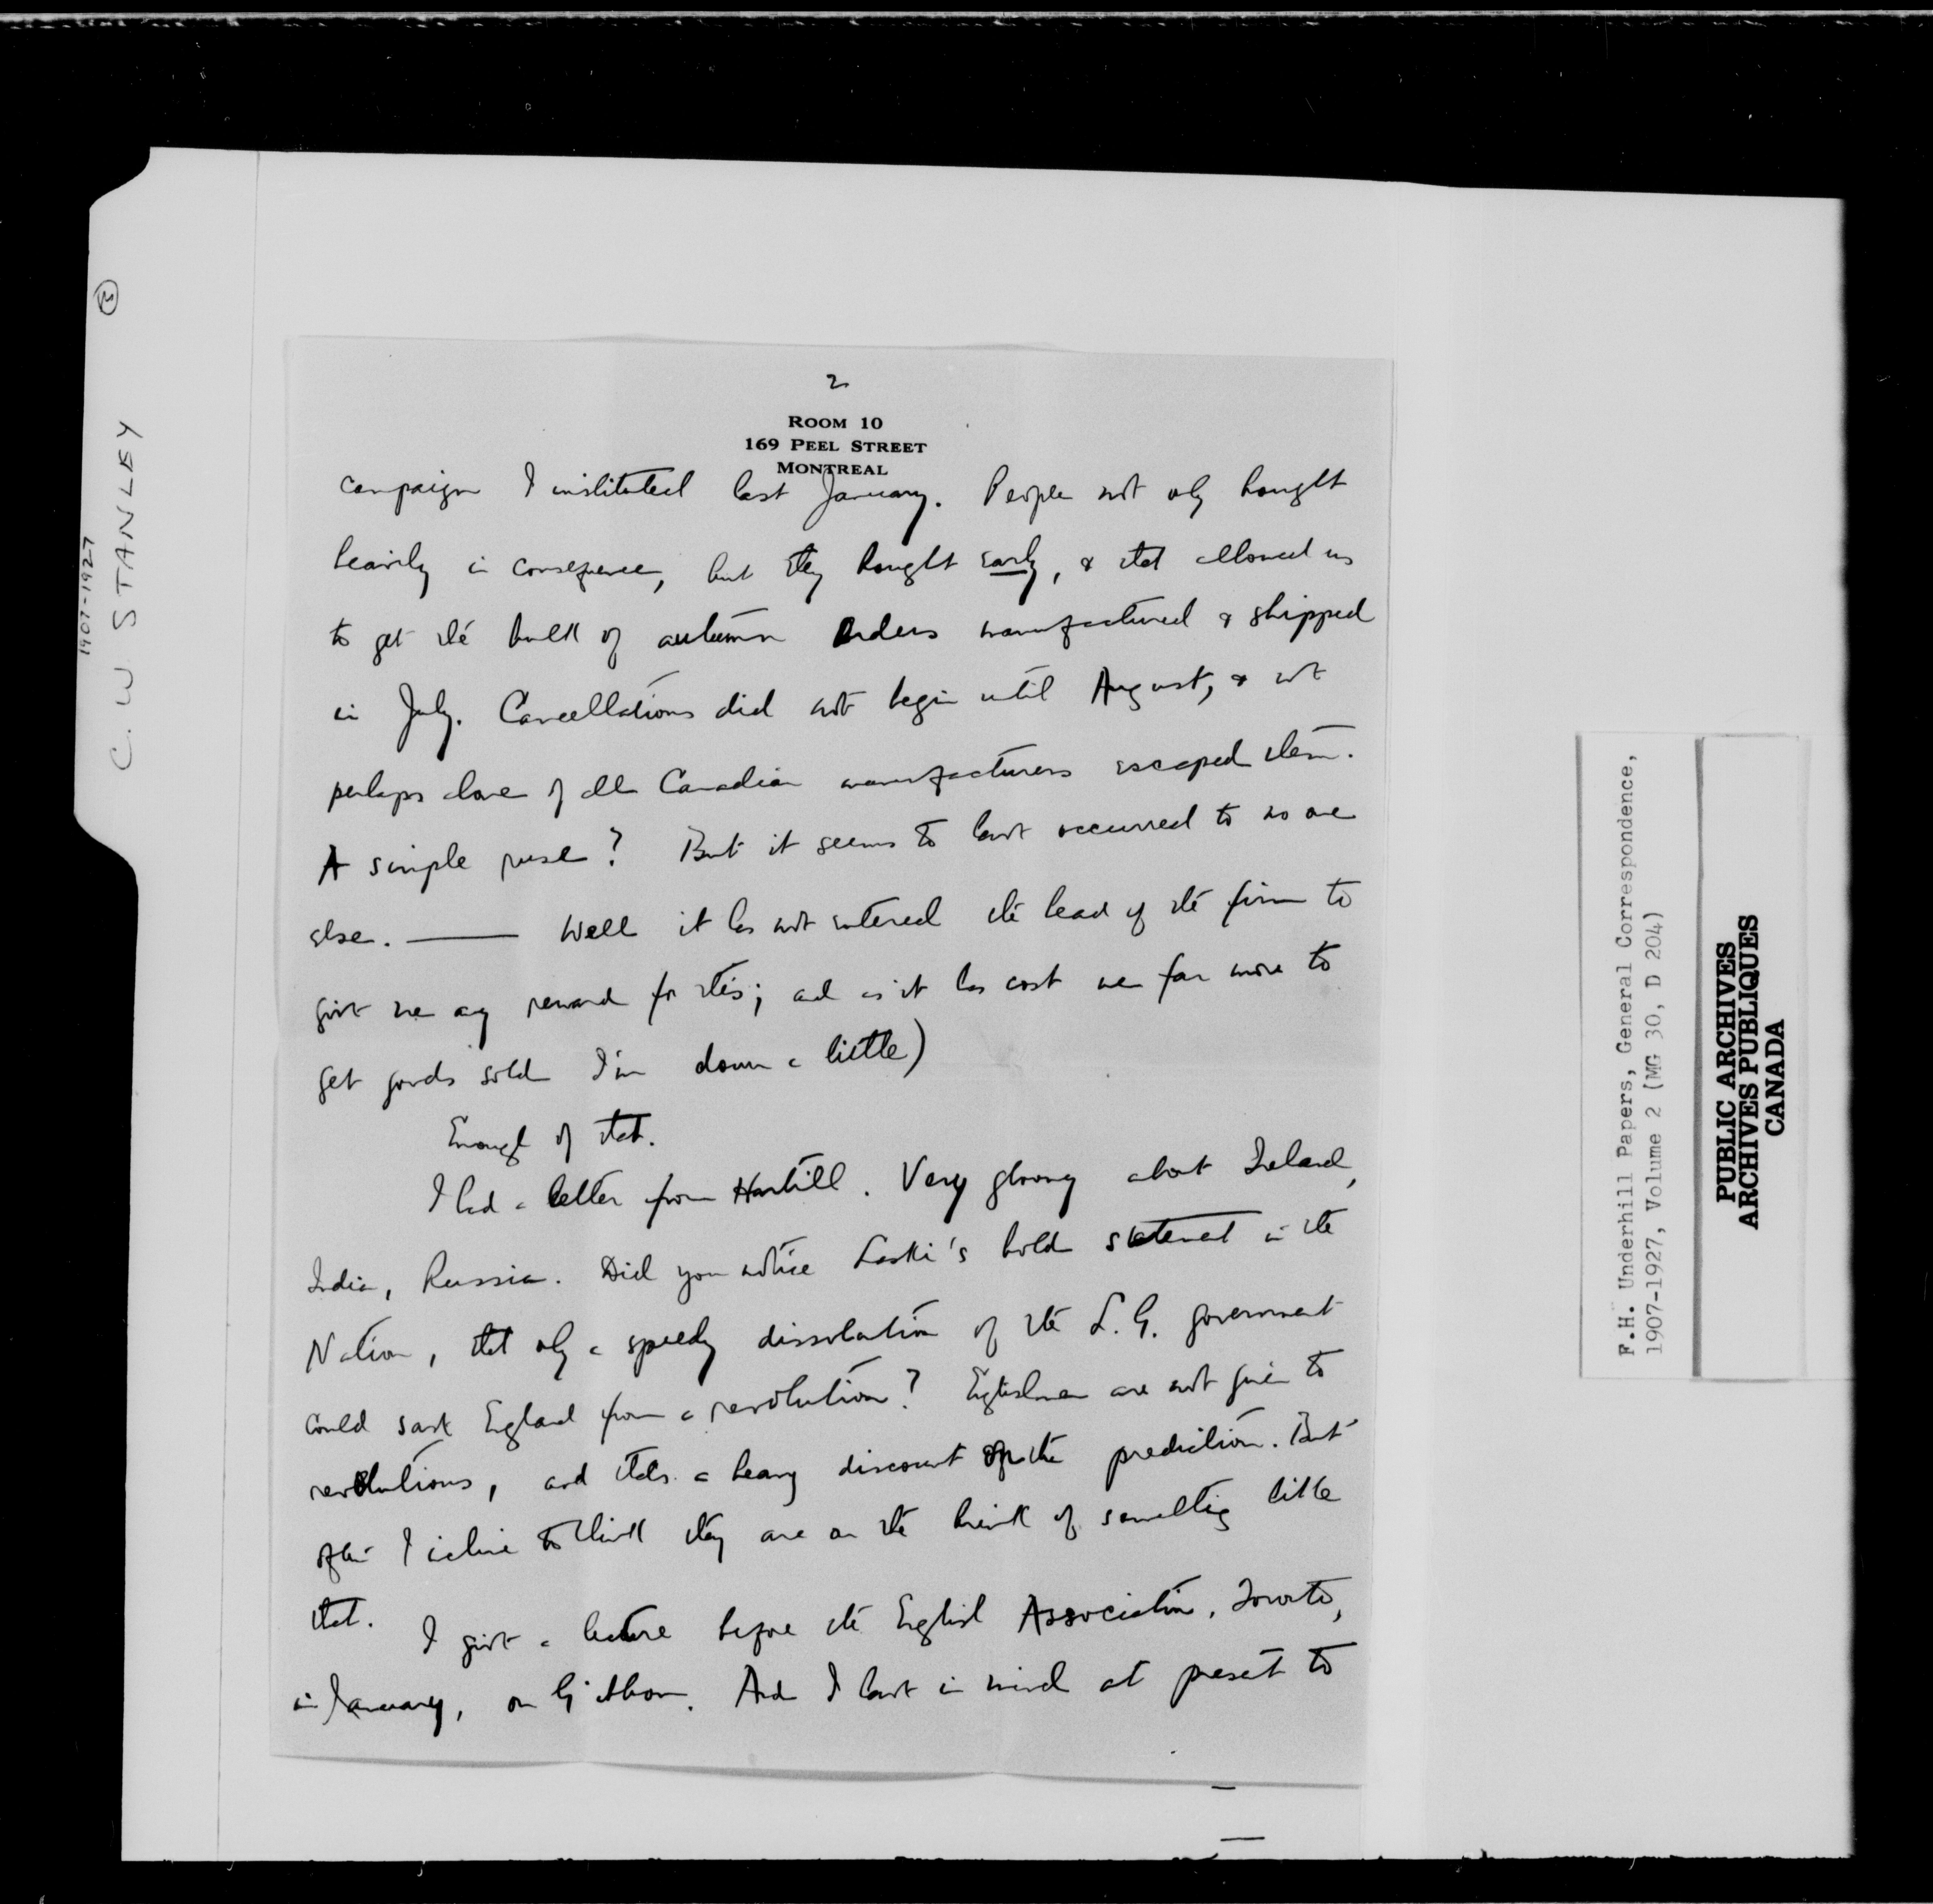 2
ROOM 10
169 PEEL STREET
MONTREAL
campaign I instituted last January. People not only bought
heavily in consequence, but they bought early, & that allowed us
to get the bulk of autumn orders manufactured & shipped
in July. Cancellations did not begin until August, & we
perhaps alone of all Canadian manufacturers escaped them.
A simple ruse? But it seems to have occurred to no one
else. —— Well it has not entered the head of the firm to
give me any reward for this; and as it has cost me far more to
get goods sold I'm down a little)
Enough of that.
I had a letter from Hartill. Very gloomy about Ireland,
India, Russia. Did you notice Laski's bold statement in the
Nation, that only a speedy dissolution of the L.G. government
could save England from a revolution? Englishmen are not given to
revolutions, and that's a heavy discount the prediction. But
often I incline to think they are on the brink of something like
that.
I give a lecture before the English Association, Toronto,
in January, on Gibbon. And I have in mind at present to
C. W STANLEY
1907-1927
F.H. Underhill Papers, General Correspondence,
1907-1927, Volume 2 (MG 30, D 204)
PUBLIC ARCHIVES
ARCHIVES PUBLIQUES
CANADA